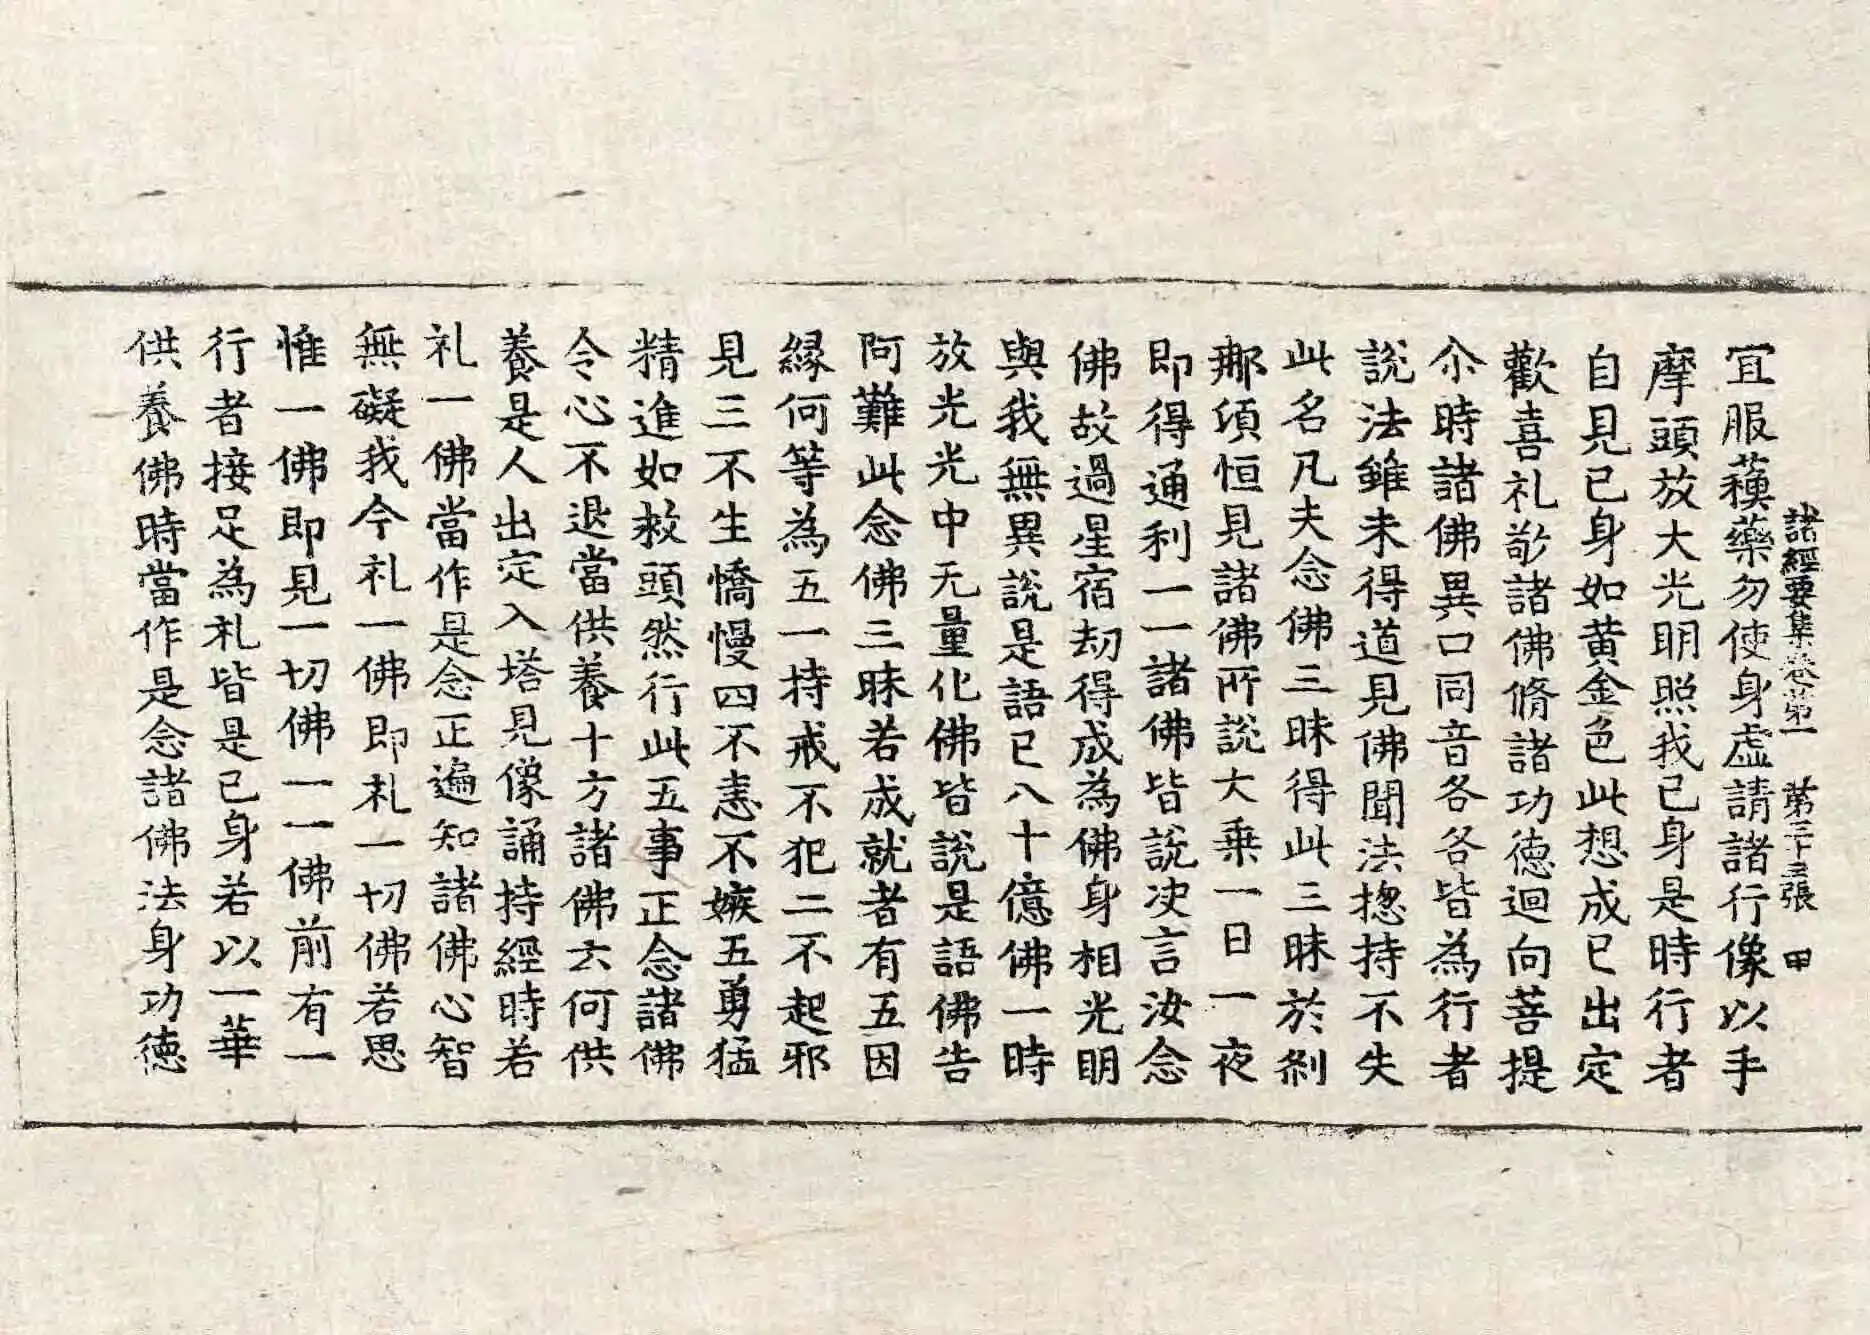 諸經要集卷第一 第三十三張 甲
冝服藥勿使身虛請諸行像以手
摩頭放大光明照我己身是時行者
自見己身如黄金色此想成已出定
歡喜礼敬諸佛脩諸功德迴向菩提
尒時諸佛異口同音各各皆為行者
說法雖未得道見佛聞法揔持不失
此名凡夫念佛三昧得此三昧於剎
那頃恒見諸佛所說大乗一日一夜
即得通利一一諸佛皆說决言汝念
佛故過星宿劫得成為佛身相光明
與我無異說是語已八十億佛一時
放光光中无量化佛皆說是語佛告
阿難此念佛三昧若成就者有五因
緣何等為五一持戒不犯二不起邪
見三不生憍慢四不恚不嫉五勇猛
精進如救頭然行此五事正念諸佛
令心不退當供養十方諸佛云何供
養是人出定入塔見像誦持經時若
礼一佛當作是念正遍知諸佛心智
無礙我今礼一佛即礼一切佛若思
惟一佛即見一切佛一一佛前有一
行者接足為礼皆是己身若以一華
供養佛時當作是念諸佛法身功德